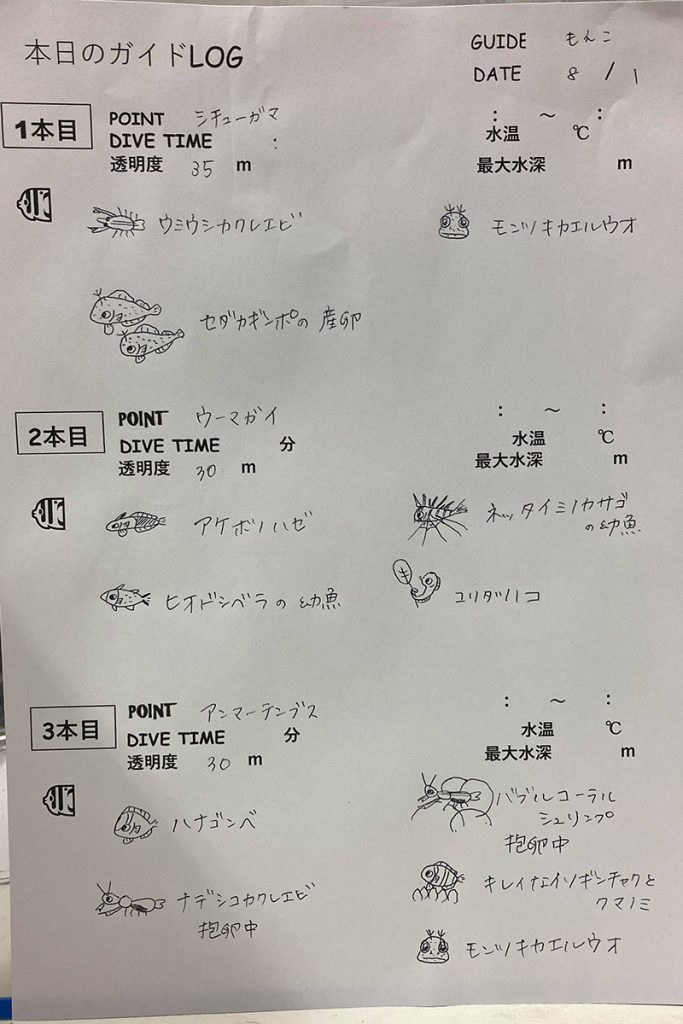 本日のガイドLOG
GUIDE もんこ
DATE 8/1
1本目
POINT シチューガマ
: ～ :
DIVE TIME :
水温 ℃
透明度 35 m
最大水深 m
ウミウシカクレエビ
モンツキカエルウオ
セダカギンポの産卵
2本目
POINT ウーマガイ
: ～ :
DIVE TIME 分
水温 ℃
透明度 30 m
最大水深 m
アケボノハゼ
ネッタイミノカサゴ
の幼魚
ヒオドシベラの幼魚
ユリタツノコ
3本目
POINT アンマーテンブス
: ～ :
DIVE TIME 分
水温 ℃
透明度 30 m
最大水深 m
ハナゴンベ
バブルコーラル
シュリンプ
抱卵中
ナデシコカクレエビ
抱卵中
キレイなイソギンチャクと
クマノミ
モンツキカエルウオ